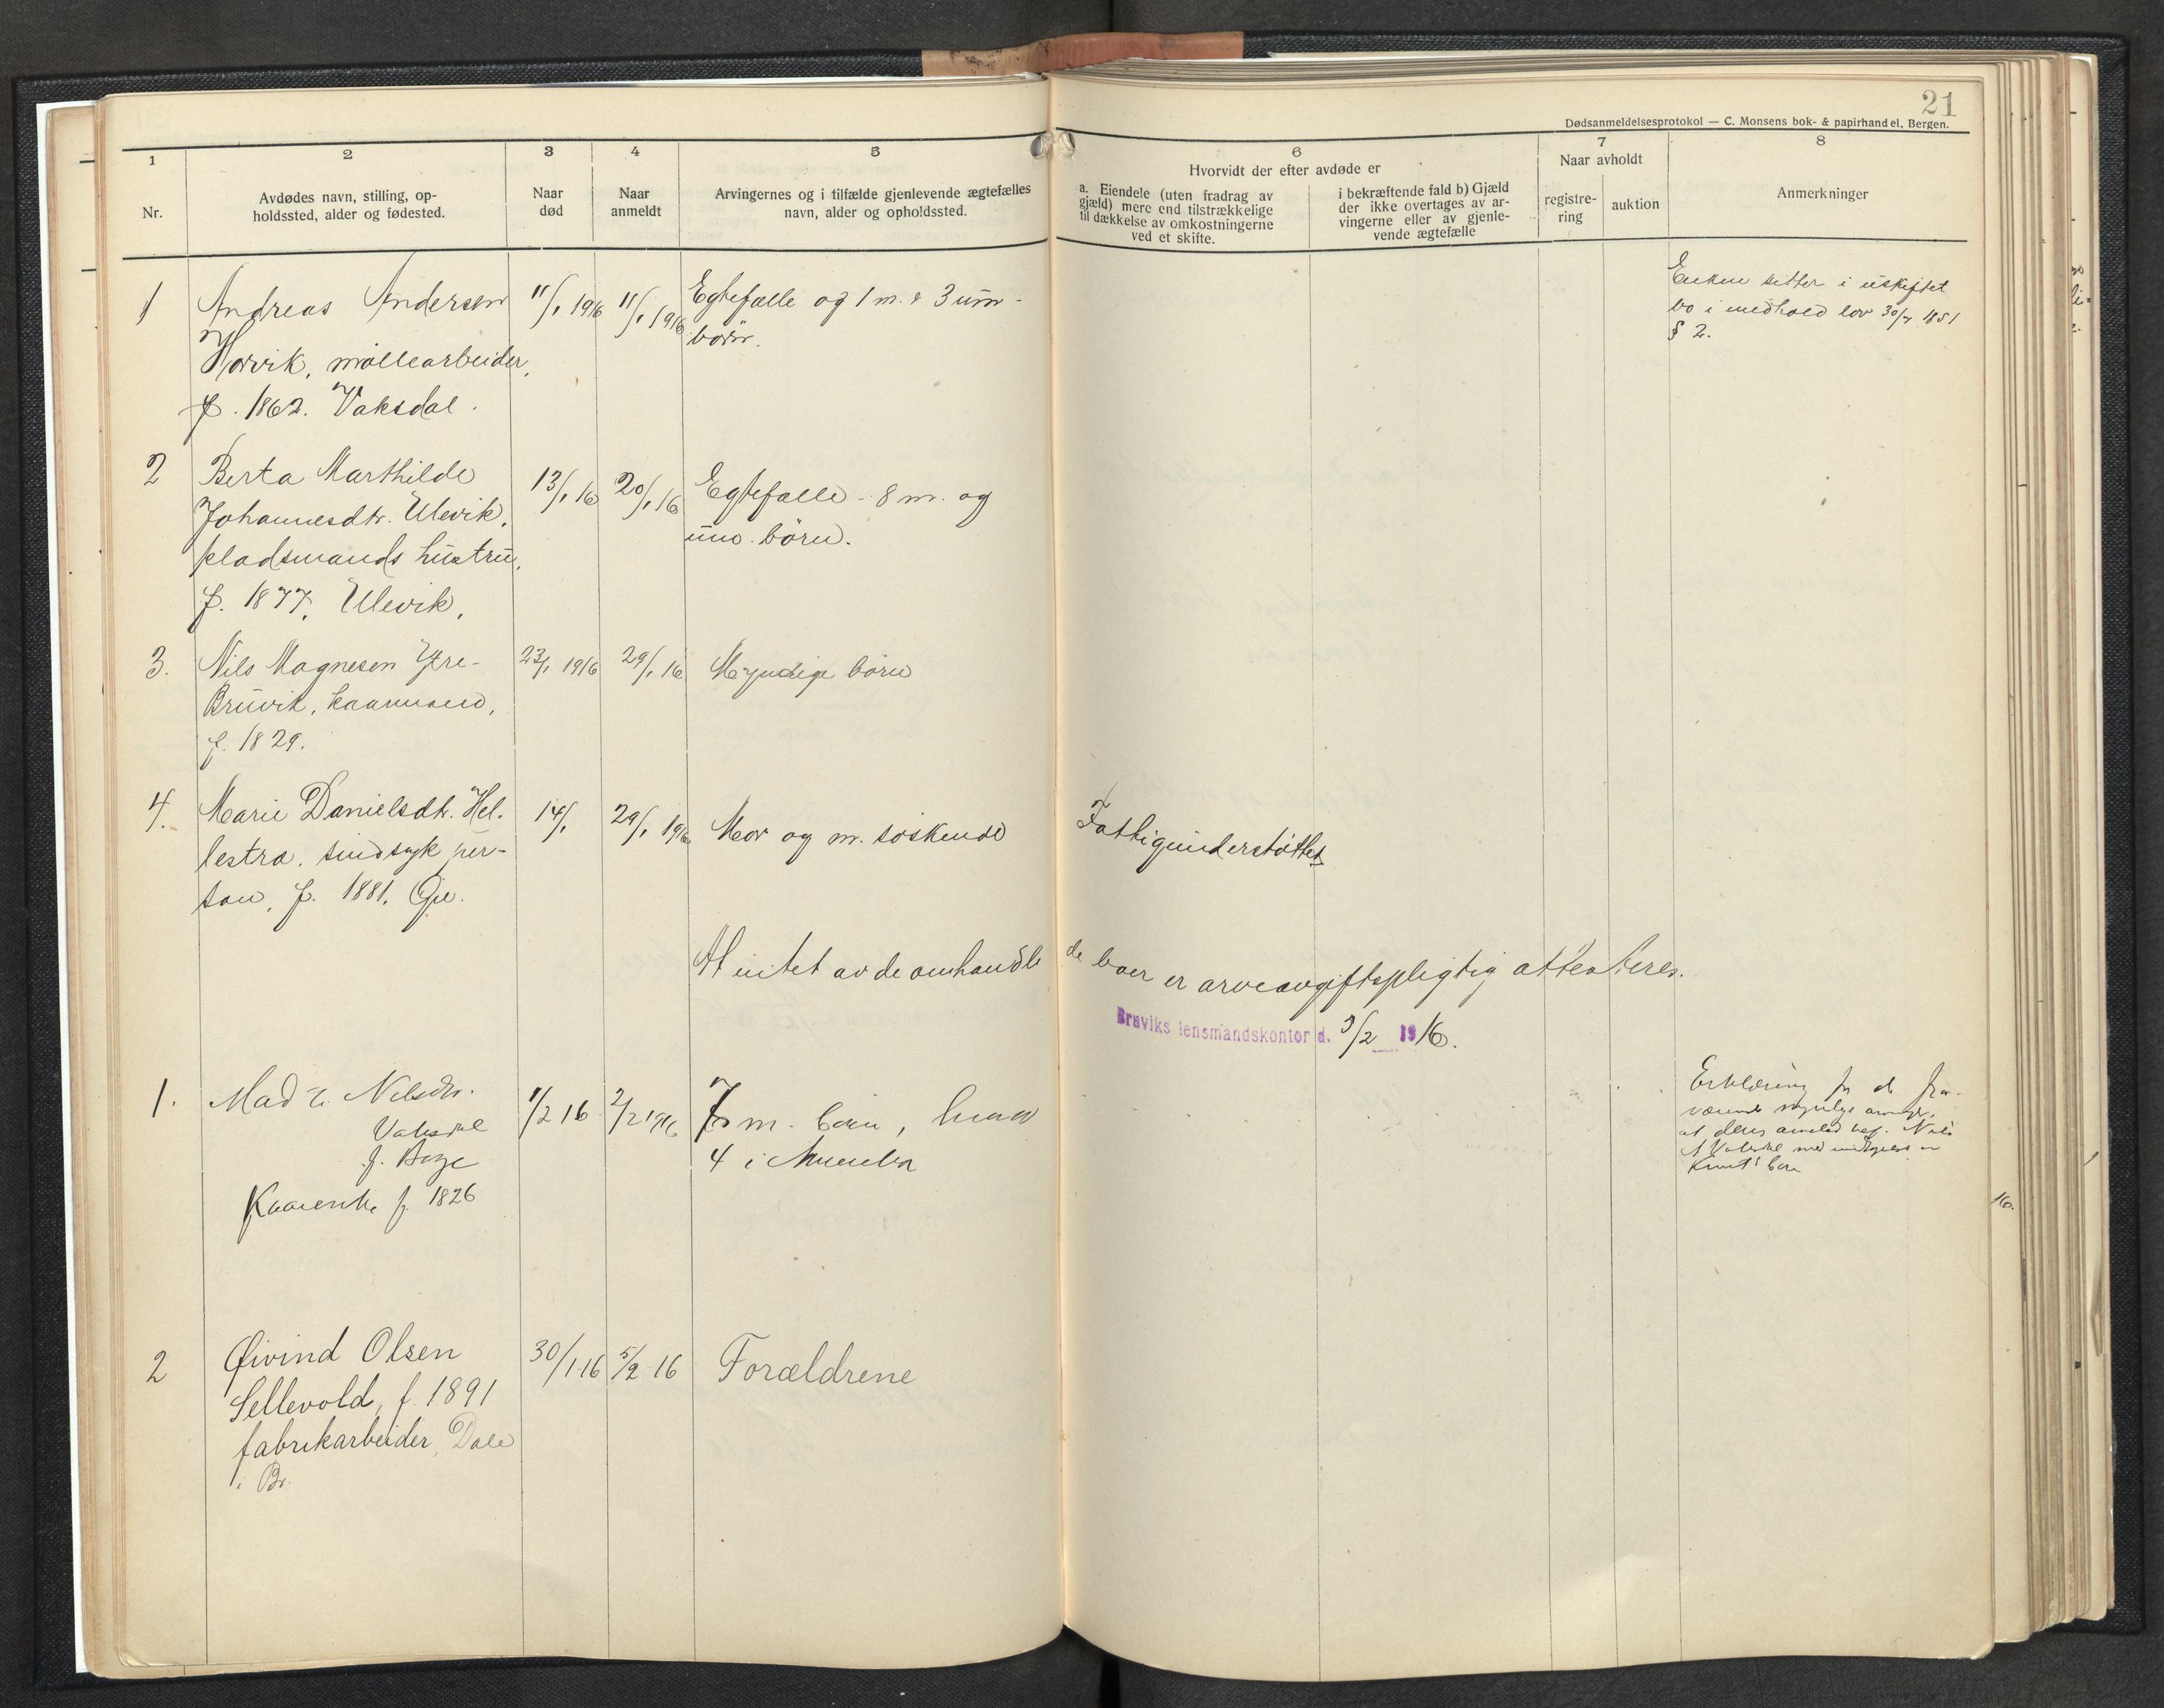 21
Dødsanmeldelsesprotokol — C. Monsens bok- & papirhandel, Bergen.
1
Nr.
2
Avdødes navn, stilling, op-
holdssted, alder og fødested.
3
Naar
død
4
Naar
anmeldt
5
Arvingernes og i tilfælde gjenlevende ægtefælles
navn, alder og opholdssted.
6
Hvorvidt der efter avdøde er
a. Eiendele (uten fradrag av
gjæld) mere end tilstrækkelige
til dækkelse av omkostningerne
ved et skifte.
i bekræftende fald b) Gjæld
der ikke overtages av ar-
vingerne eller av gjenle-
vende ægtefælle
7
Naar avholdt
registre-
ring
auktion
8
Anmerkninger
1
Andreas Andersen
Horvik, møllearbeider,
f. 1862. Vaksdal.
11/1 1916
11/1 1916
Egtefælle og 1 m. & 3 um-
børn.
Enken sitter i uskiftet
bo i medhold lov 30/7 1851
§ 2.
2
Berta Marthilde
Johannesdtr. Ulevik,
pladsmands hustru,
f. 1877, Ulevik,
13/1 16
20/1 16
Egtefælle - 8 m. og
um. børn.
3.
Nils Magnesen Ytre-
Bruvik, kaarmand,
f. 1829.
23/1 1916
29/1 16
Myndige børn
4.
Marie Danielsdtr. Hel-
lestra. sindsyk per-
son, f. 1881.
14/1
29/1 1916
Mor og m. søskende
Fattigunderstøttet
At intet av de omhandlede boer er arveavgiftspligtig attesteres.
Bruviks lensmandskontor d. 3/2 1916.
1.
Nilsdtr.
Vaksdal
f.
Kaarenke f. 1826
1/2 16
2/2 1916
7 m. børn, hvorav
4 i Amerika
Erklæring fra de fra-
2
Øivind Olsen
Sellevold, f. 1891
fabrikarbeider, Dale
i Br.
30/1 16
5/2 16
Forældrene
16.